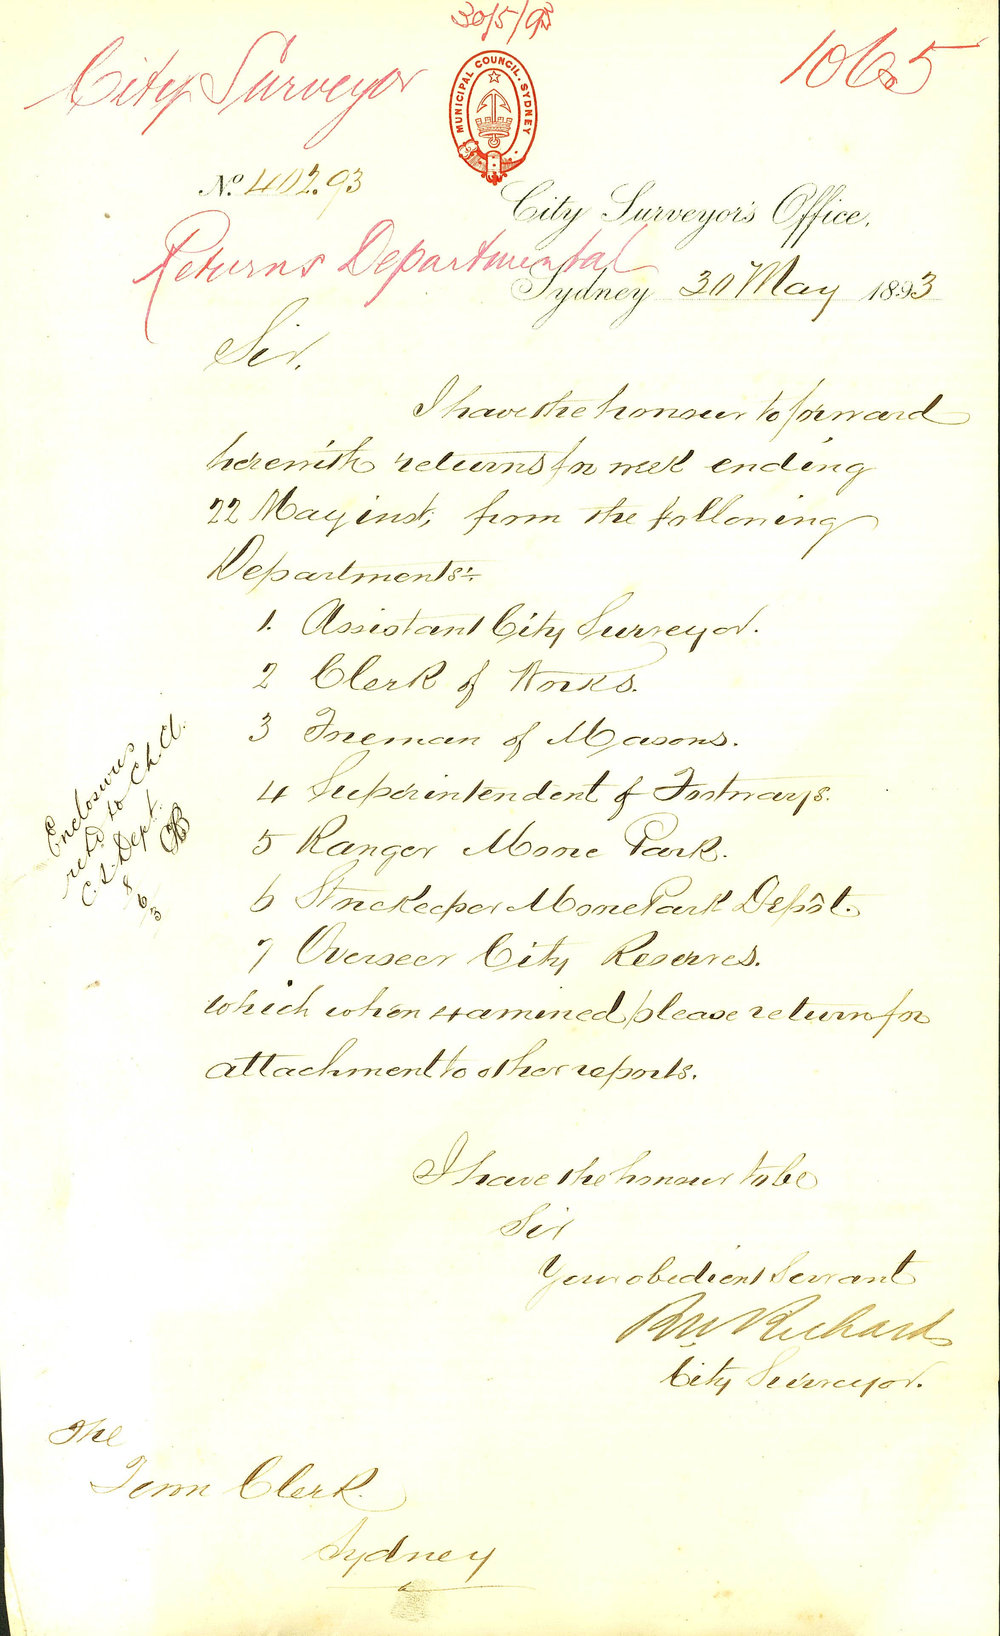 30/5/93
City Surveyor
1065
MUNICIPAL COUNCIL. SYDNEY
No. 402.93
City Surveyor's Office,
Returns Departmental
Sydney 30 May 1893
Sir,
I have the honour to forward
herewith returns for week ending
22 May inst, from the following
Departments:-
1. Assistant City Surveyor.
2 Clerk of Works.
3 Foreman of Masons.
4 Superintendent of Footways.
5 Ranger Moore Park.
6 Storekeeper Moore Park Depôt.
7 Overseer City Reserves.
which when examined please return for
attachment to other reports.
Enclosures
retd to Ch. Cl.
C.S. Dept.
8/6/3
I have the honour to be
Sir
Your obedient Servant
RW Richards
City Surveyor.
The
Town Clerk.
Sydney